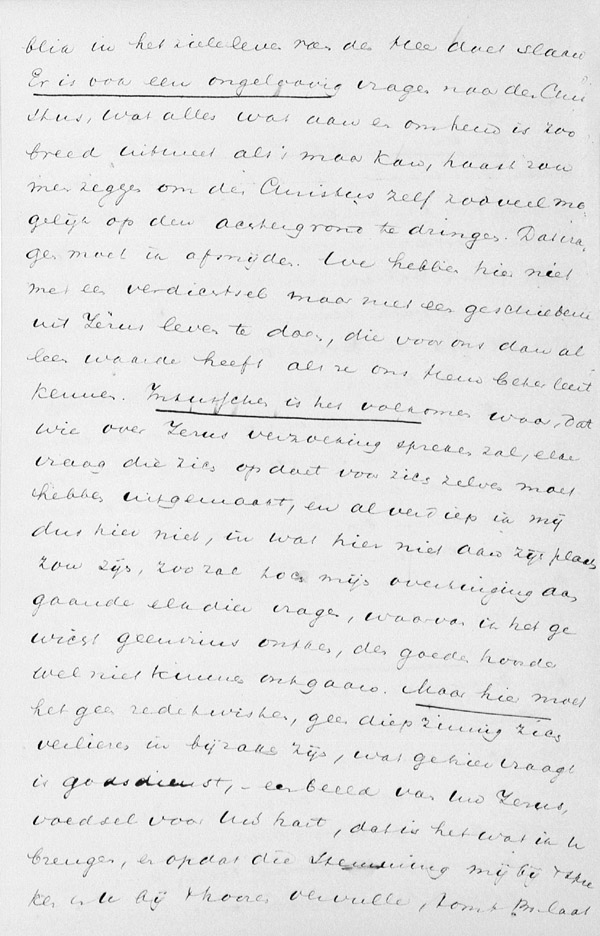 blik in het zieleleven van den Heer doet slaan
Er is ook een ongeloovig vragen naar den Chris
tus, wat alles wat aan en om hem is zoo
breed uitmeet als 't maar kan, haast zou
men zeggen om den Christus zelf zooveel mo
gelijk op den achtergrond te dringen. Dat vra
gen moet ik afsnijden. We hebben hier niet
met een verdichtsel maar met een geschiedenis
uit Jezus leven te doen, die voor ons dan al
leen waarde heeft als ze ons Hem beter leert
kennen. Intusschen is het volkomen waar, dat
wie over Jezus verzoeking spreken zal, elke
vraag die zich opdoet voor zich zelven moet
hebben uitgemaakt, en al verdiep ik mij
dus hier niet, in wat hier niet aan zijn plaats
zou zijn, zoo zal toch mijn overtuiging aan
gaande elk dier vragen, waarvan ik het ge
wicht geenszins ontken, den goeden hoorder
wel niet kunnen ontgaan. Maar hier moet
het geen redetwisten, geen diepzinnig zich
verliezen in bijzaken zijn, wat ge hier vraagt
is godsdienst, - een beeld van uw Jezus,
voedsel voor uw hart, dat is het wat ik u
brengen, en opdat die stemming mij bij 't spre
ken en u bij 't hooren vervulle, komt